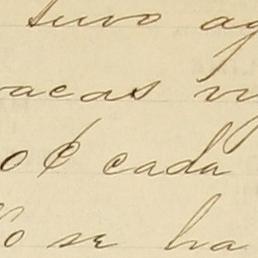 tuvo ag
vacas vi
o ₡ cada
No se ha